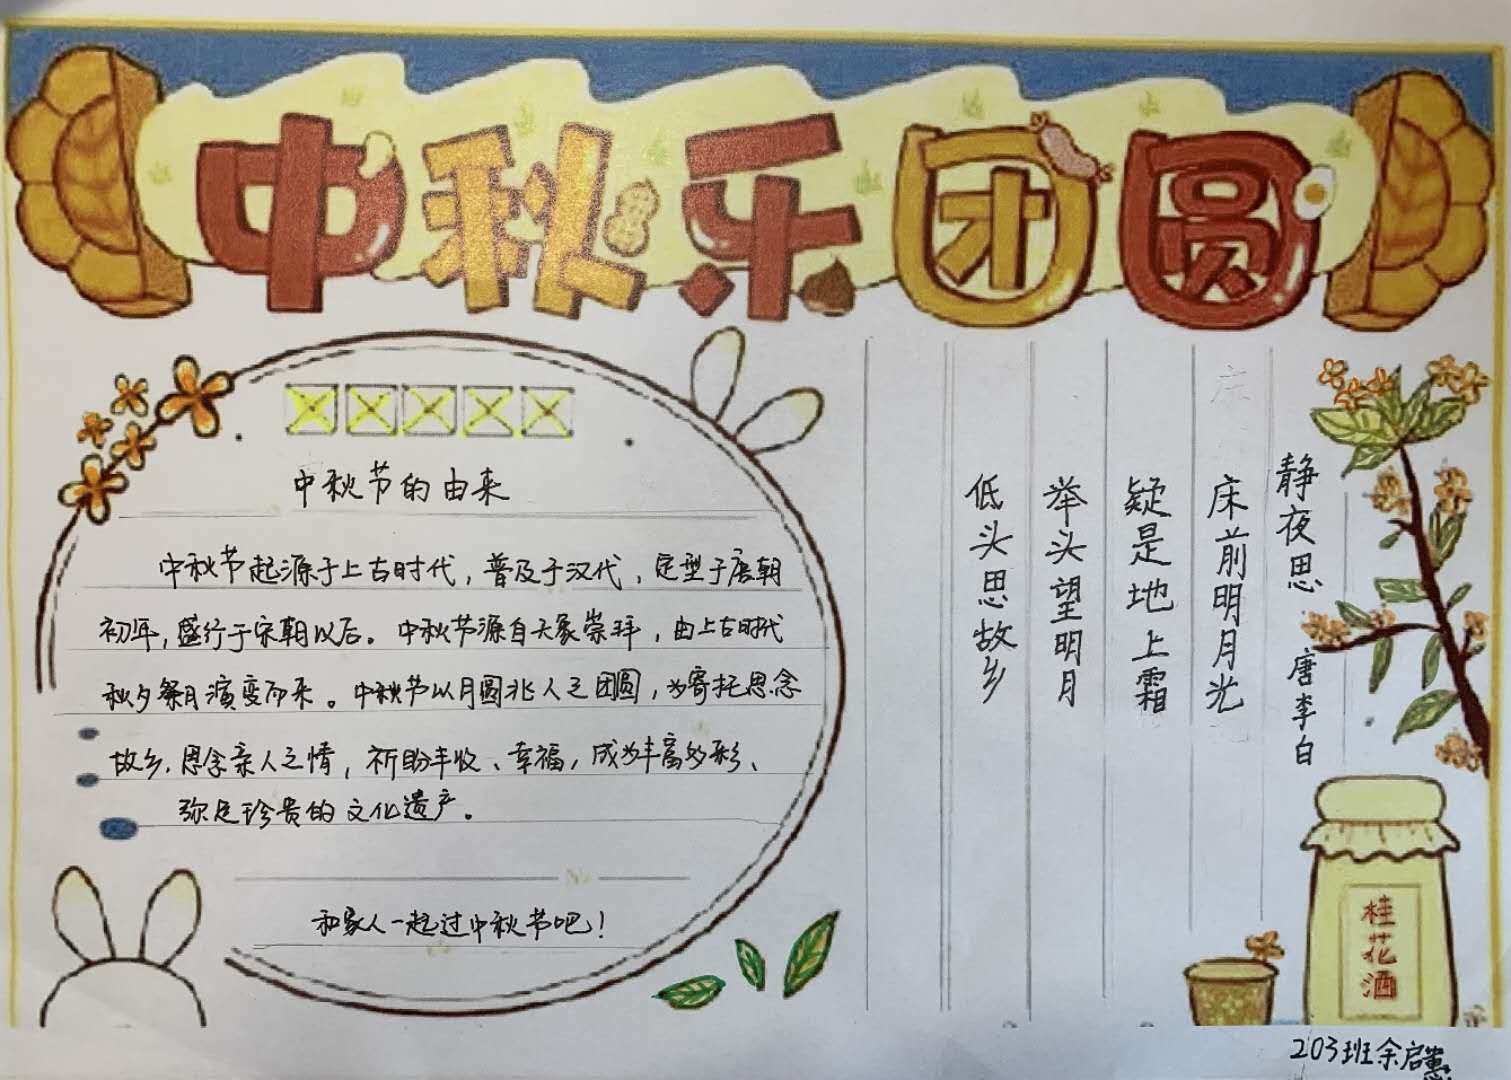 中秋乐团圆
中秋节的由来
中秋节起源于上古时代，普及于汉代，定型于唐朝
初年，盛行于宋朝以后。中秋节源自天象崇拜，由上古时代
秋夕祭月演变而来。中秋节以月圆兆人之团圆，为寄托思念
故乡，思念亲人之情，祈盼丰收、幸福，成为丰富多彩、
弥足珍贵的文化遗产。
和家人一起过中秋节吧！
静夜思 唐李白
床前明月光
疑是地上霜
举头望明月
低头思故乡
桂花酒
203班余启